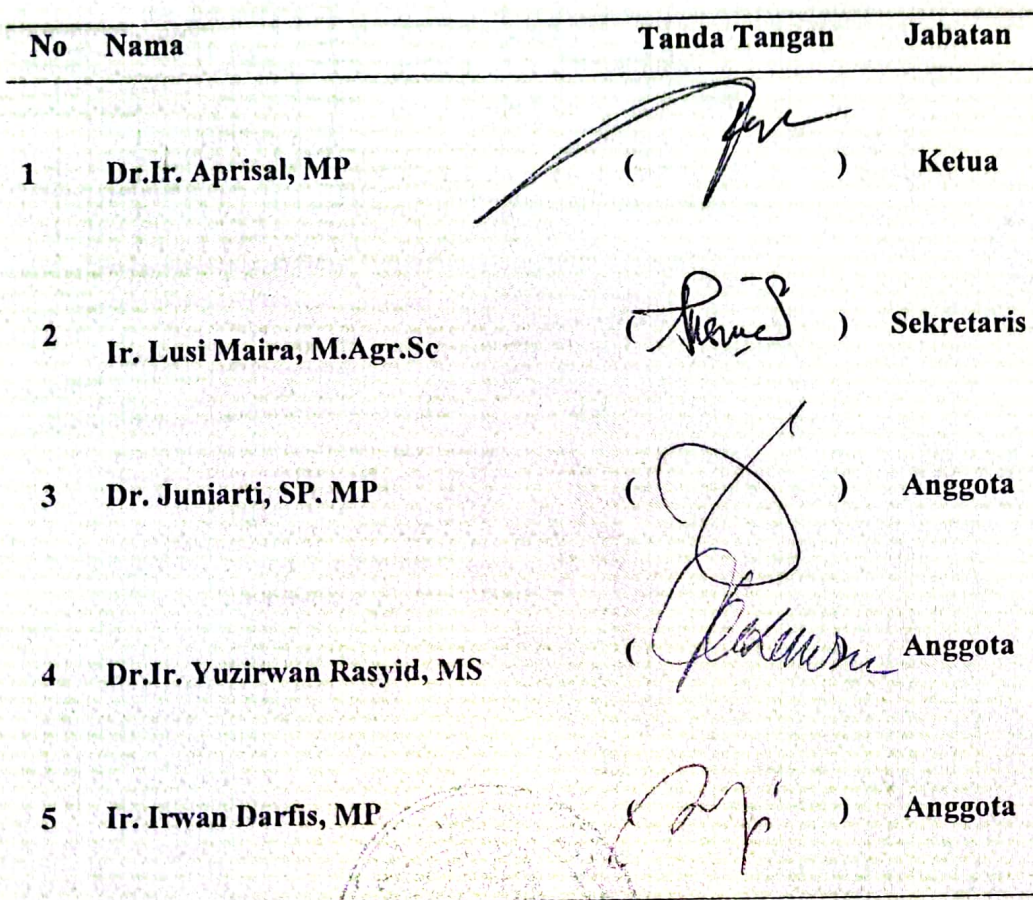 No Nama Tanda Tangan Jabatan
1 Dr.Ir. Aprisal, MP ( ) Ketua
2 Ir. Lusi Maira, M.Agr.Sc ( ) Sekretaris
3 Dr. Juniarti, SP. MP ( ) Anggota
4 Dr.Ir. Yuzirwan Rasyid, MS ( Anggota
5 Ir. Irwan Darfis, MP ( ) Anggota